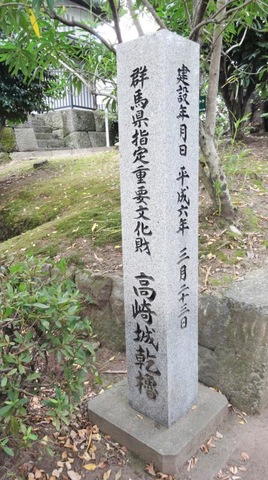 群馬県指定重要文化財 高崎城乾櫓
建設年月日 平成六年 三月二十三日